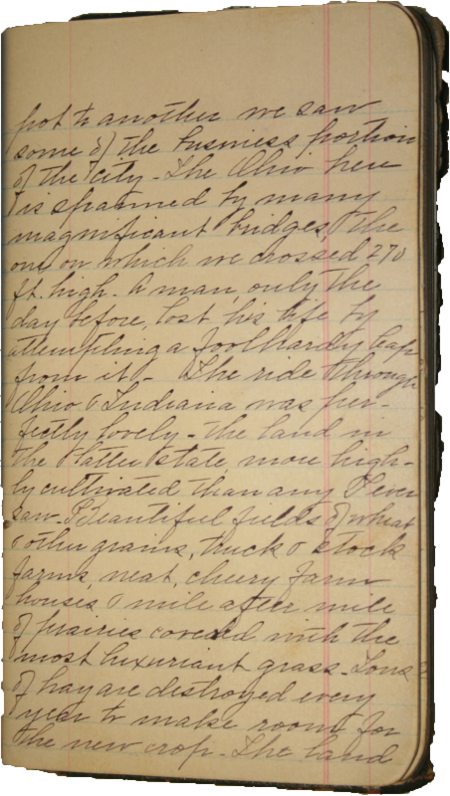 pot to another we saw
some of the business portion
of the city - The Ohio here
is spanned by many
magnificant bridges, the
one on which we crossed 270
ft. high. A man, only the
day before, lost his life by
attempting a foolhardy leap
from it - The ride through
Ohio & Indiana was per-
fectly lovely - The land in
the latter state, more high-
ly cultivated than any I ever
saw. Beautiful fields of wheat
& other grains, truck & stock
farms, neat, cheery farm
houses & mile after mile
of prairies covered with the
most luxuriant grass. Tons
of hay are destroyed every
year to make room for
the new crop - The land